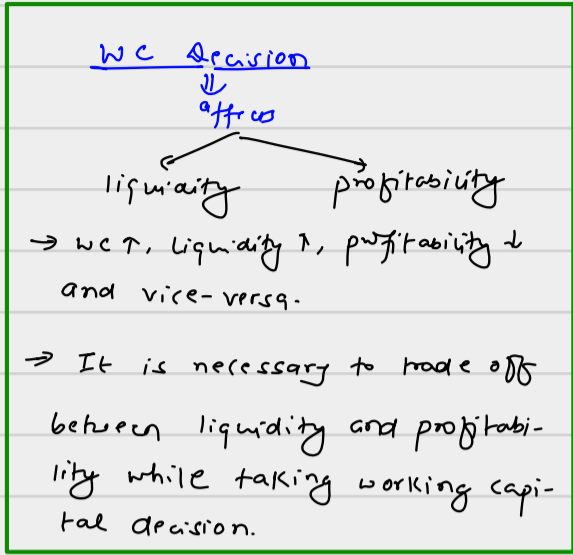 WC Decision
⇓
affects
liquidity profitability
→ WC ↑, Liquidity ↑, profitability ↓
and vice-versa.
→ It is necessary to trade off
between liquidity and profitabi-
lity while taking working capi-
tal decision.